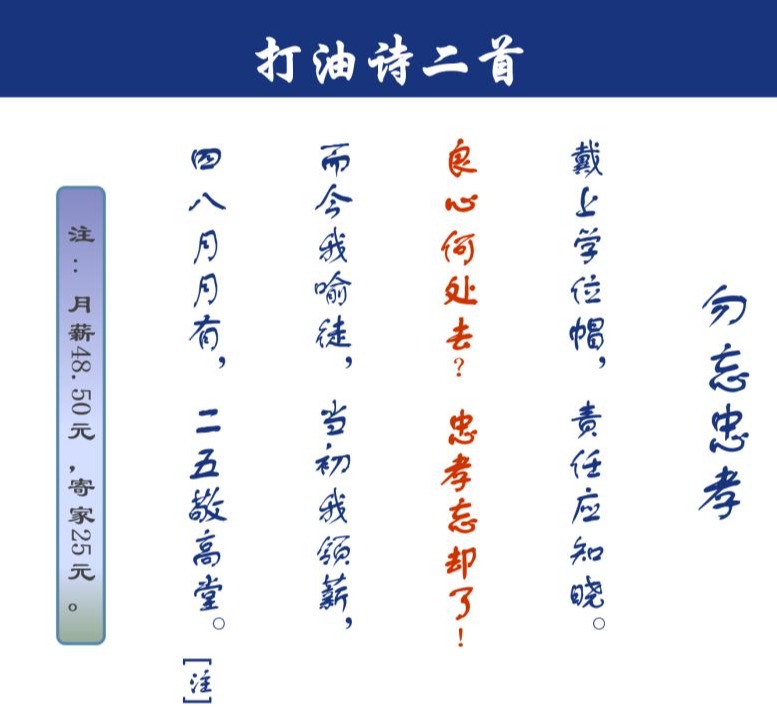 打油诗二首
勿忘忠孝
戴上学位帽，责任应知晓。
良心何处去？忠孝忘却了！
而今我喻徒，当初我领薪，
四八月月有，二五敬高堂。[注]
注：月薪48.50元，寄家25元。